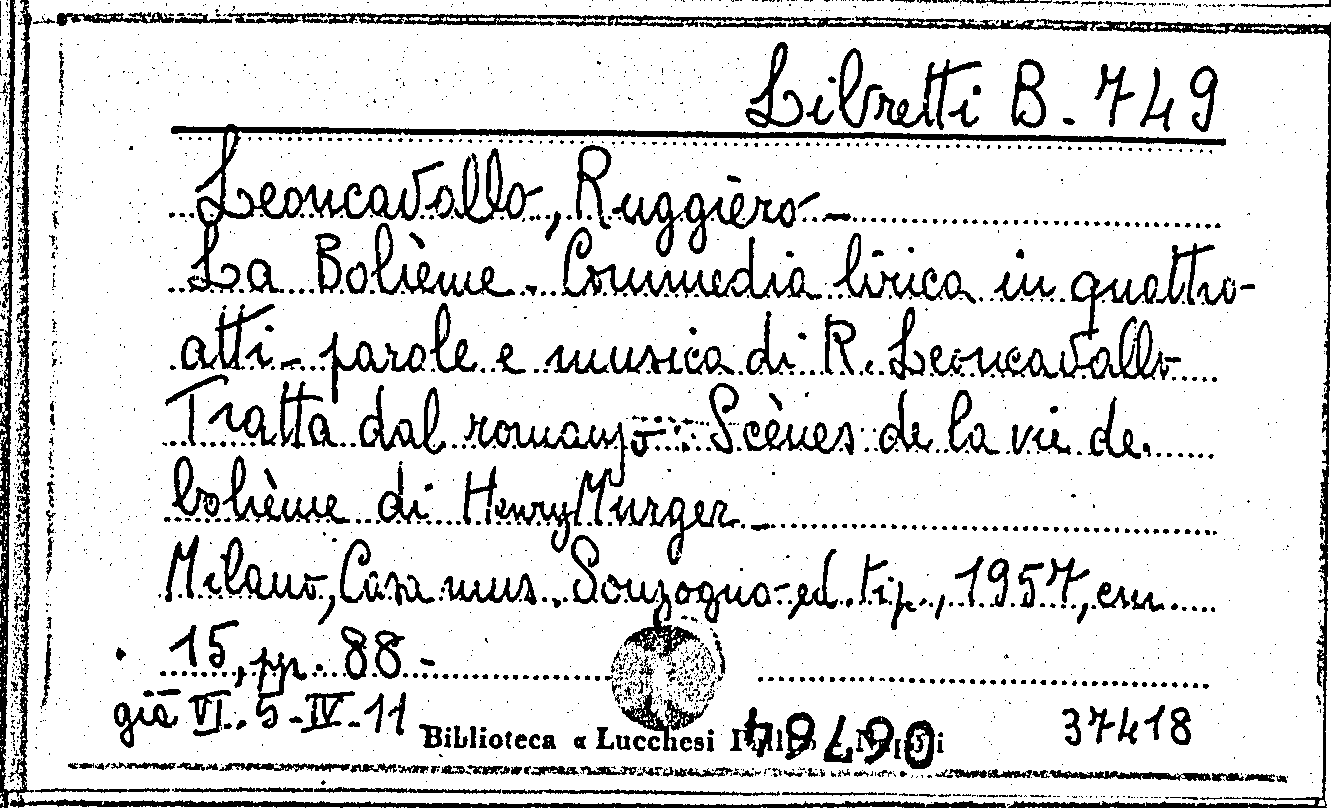 Libretti B. 749
Leoncavallo, Ruggièro -
La Bohème. Commedia lirica in quattro
atti - parole e musica di R. Leoncavallo
Tratta dal romanzo: Scènes de la vie de
bohème di Henry Murger -
Milano, Casa mus. Sonzogno ed. tip., 1957, cm
15, pp. 88 -
già VI. 5 - IV - 11
Biblioteca « Lucchesi
37418